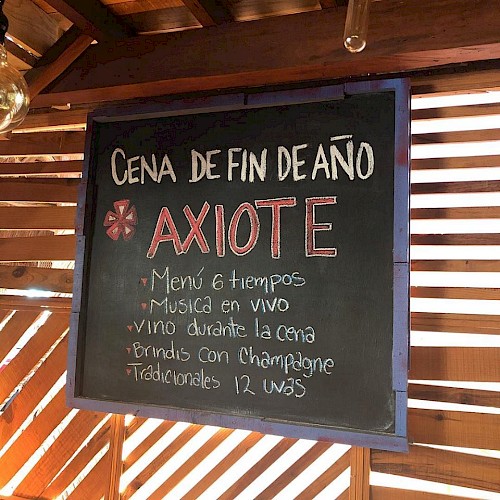 CENA DE FIN DE AÑO
AXIOTE
Menú 6 tiempos
Musica en vivo
Vino durante la cena
Brindis con Champagne
Tradicionales 12 uvas